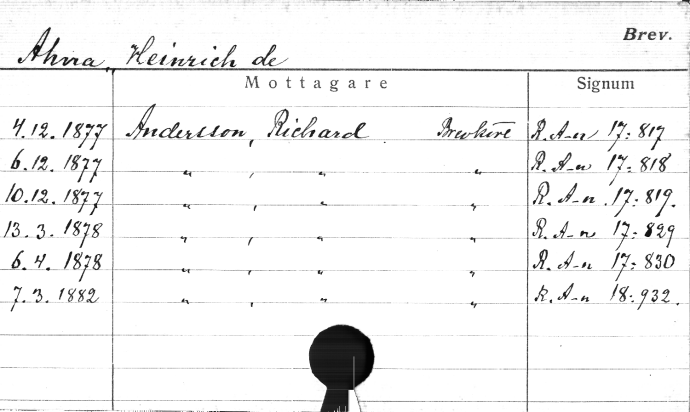 Brev.
Ahna, Heinrich de
Mottagare Signum
4.12.1877 Andersson, Richard Brevkort R. A-n 17:817
6.12.1877 " , " " R. A-n 17:818
10.12.1877 " , " " R. A-n 17:819.
13.3.1878 " , " " R. A-n 17:829
6.4.1878 " , " " R. A-n 17:830
7.3.1882 " , " " R. A-n 18:932.